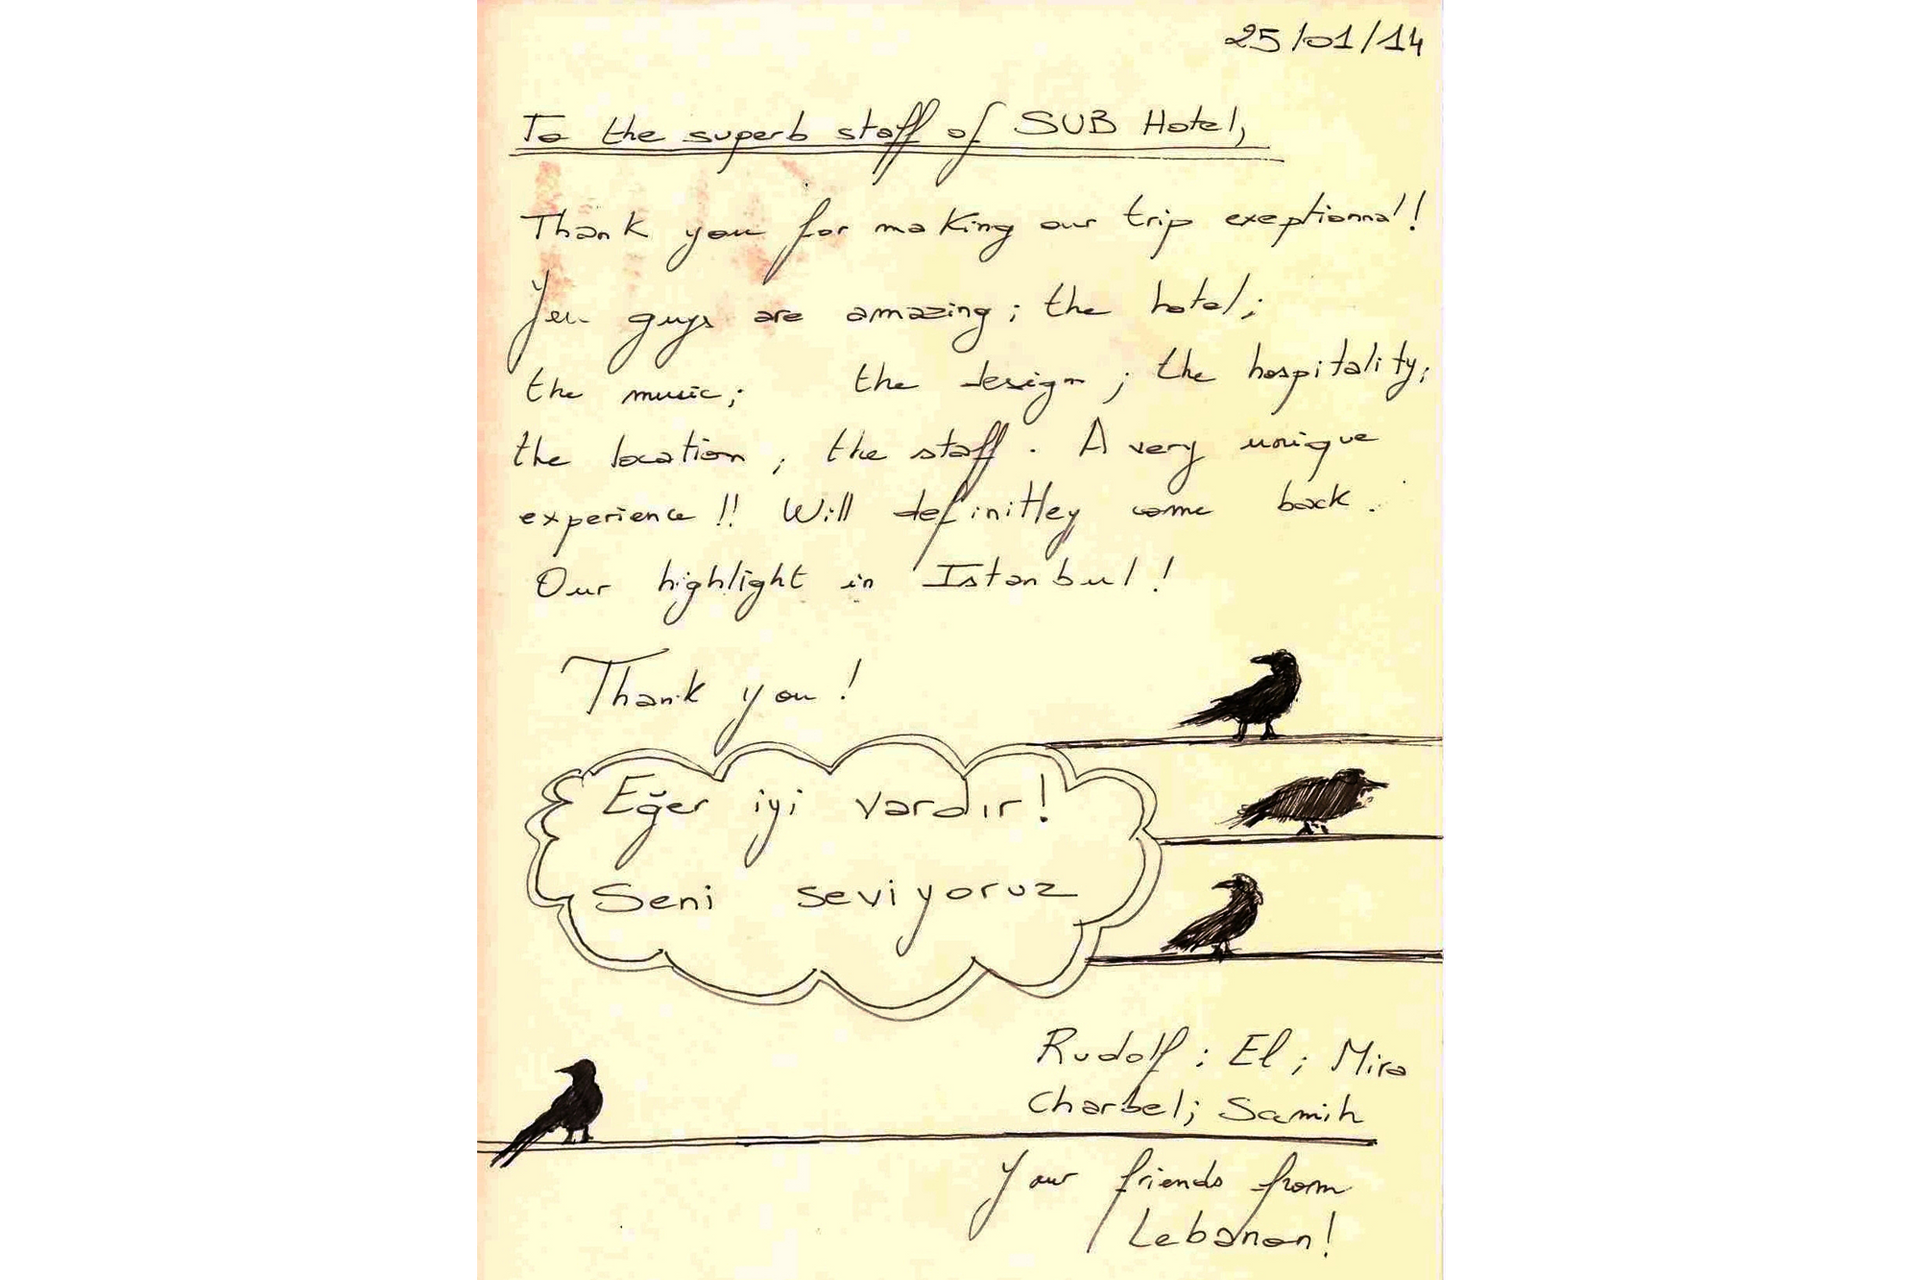 25/01/14
To the superb staff of SUB Hotel,
Thank you for making our trip exeptionnal!
You guys are amazing; the hotel;
the music; the design; the hospitality;
the location; the staff. A very unique
experience!! Will definitley come back.
Our highlight in Istanbul!
Thank you!
Eğer iyi vardır!
Seni seviyoruz
Rudolf; El; Mira
Charbel; Samih
Your friends from
Lebanon!